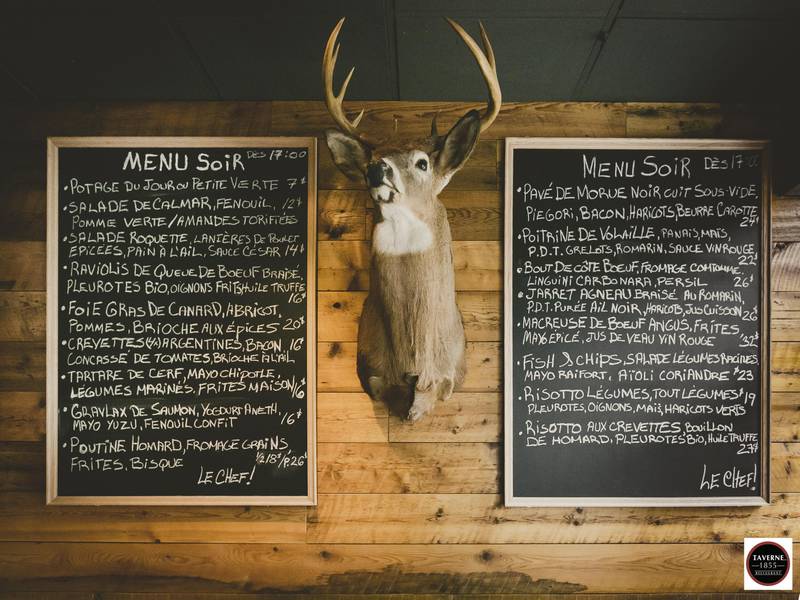 MENU SOIR DÈS 17:00
• POTAGE DU JOUR OU PETITE VERTE 7$
• SALADE DE CALMAR, FENOUIL, 12$
POMME VERTE/AMANDES TORIFIÉES
• SALADE ROQUETTE, LANIÈRES DE POULET
ÉPICÉES, PAIN À L'AIL, SAUCE CÉSAR 14$
• RAVIOLIS DE QUEUE DE BOEUF BRAISÉ,
PLEUROTES BIO, OIGNONS FRITS, HUILE TRUFFE
16$
• FOIE GRAS DE CANARD, ABRICOT,
POMMES, BRIOCHE AUX ÉPICES 20$
• CREVETTES (4) ARGENTINES, BACON, 16$
CONCASSÉ DE TOMATES, BRIOCHE À L'AIL
• TARTARE DE CERF, MAYO CHIPOTLE,
LÉGUMES MARINÉS, FRITES MAISON 16$
• GRAVLAX DE SAUMON, YOGOURT ANETH,
MAYO YUZU, FENOUIL CONFIT 16$
• POUTINE HOMARD, FROMAGE GRAINS,
FRITES, BISQUE 1/2 18$/P. 26$
LE CHEF!
MENU SOIR DÈS 17:00
• PAVÉ DE MORUE NOIR CUIT SOUS-VIDE,
PIEGORI, BACON, HARICOTS, BEURRE CAROTTE
27$
• POITRINE DE VOLAILLE, PANAIS, MAÏS,
P.D.T. GRELOTS, ROMARIN, SAUCE VIN ROUGE
22$
• BOUT DE CÔTE BOEUF, FROMAGE COMTOMME,
LINGUINI CARBONARA, PERSIL 26$
• JARRET AGNEAU BRAISÉ AU ROMARIN,
P.D.T. PURÉE AIL NOIR, HARICOTS, JUS CUISSON 26$
• MACREUSE DE BOEUF ANGUS, FRITES,
MAYO ÉPICÉ, JUS DE VEAU VIN ROUGE 32$
• FISH & CHIPS, SALADE LÉGUMES RACINES,
MAYO RAIFORT, AÏOLI CORIANDRE $23
• RISOTTO LÉGUMES, TOUT LÉGUMES $19
PLEUROTES, OIGNONS, MAÏS, HARICOTS VERTS
• RISOTTO AUX CREVETTES, BOUILLON
DE HOMARD, PLEUROTES BIO, HUILE TRUFFE
27$
LE CHEF!
TAVERNE
1855
RESTAURANT